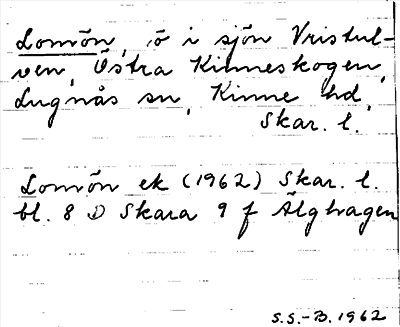 Lomön, ö i sjön Vristul-
ven, Östra Kinneskogen,
Lugnås sn, Kinne hd,
Skar. l.
Lomön ek (1962) Skar. l.
bl. 8 D Skara 9 f Älghagen
S.S.-B. 1962